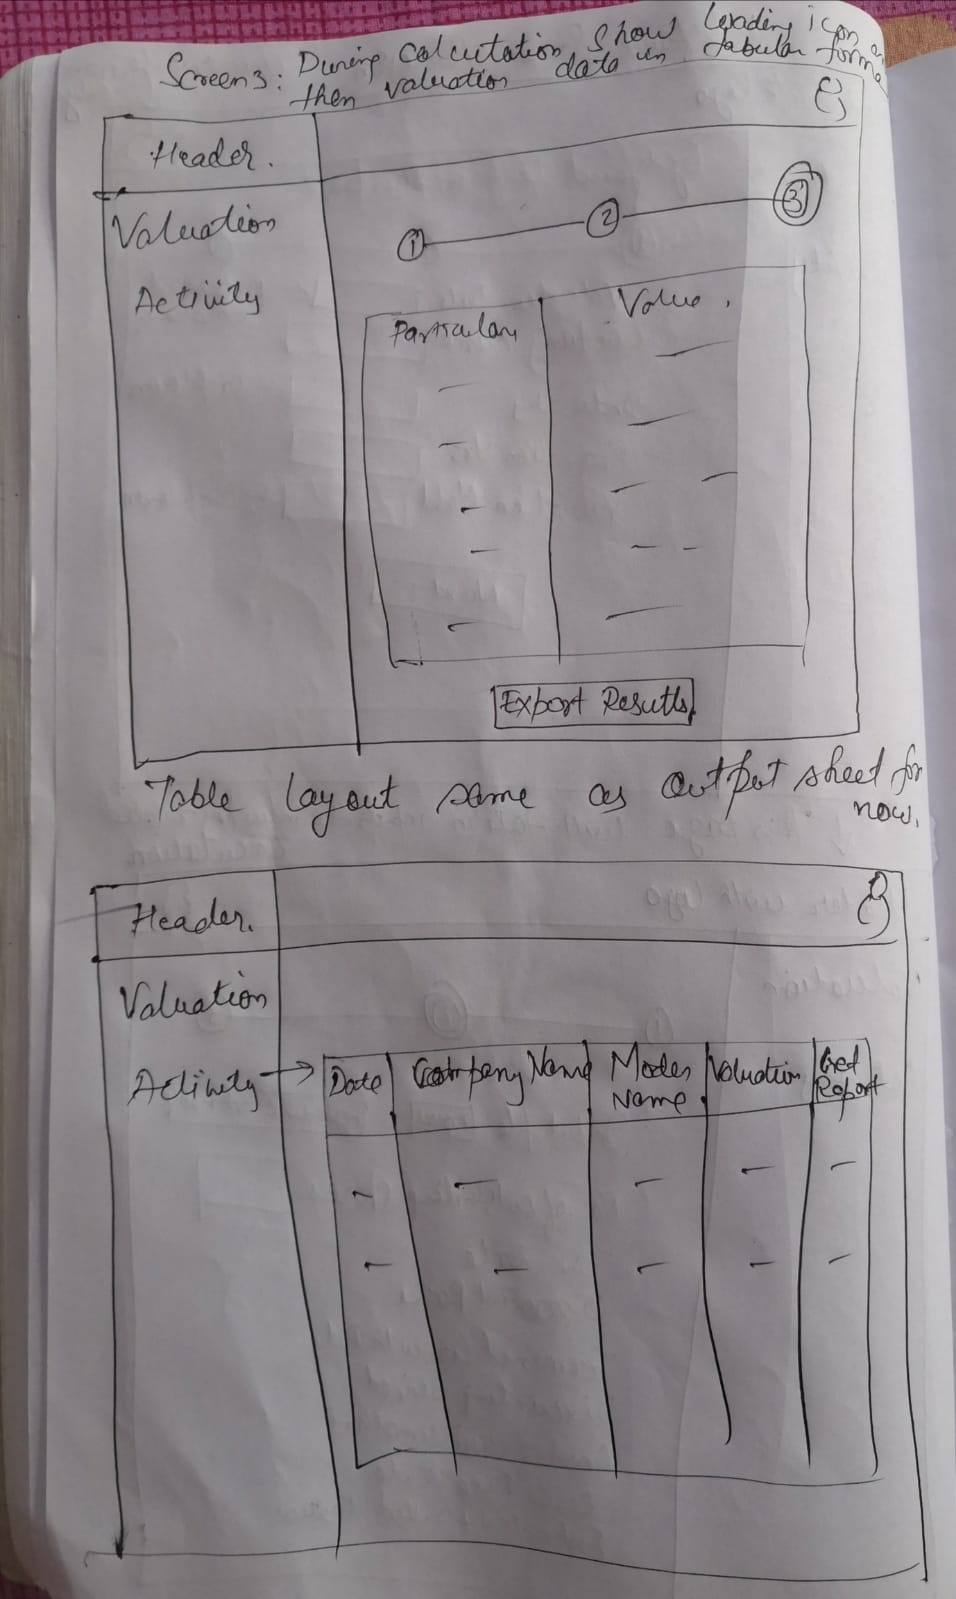 Screen3: During calculation, show loading icon
then valuation data in tabular
Header.
Valuation
Activity
1
2
3
Particulars
Value.
Export Results
Table layout same as output sheet for
now.
Header.
Valuation
Activity
Date
Company Name
Model
Name
Valuation
Report